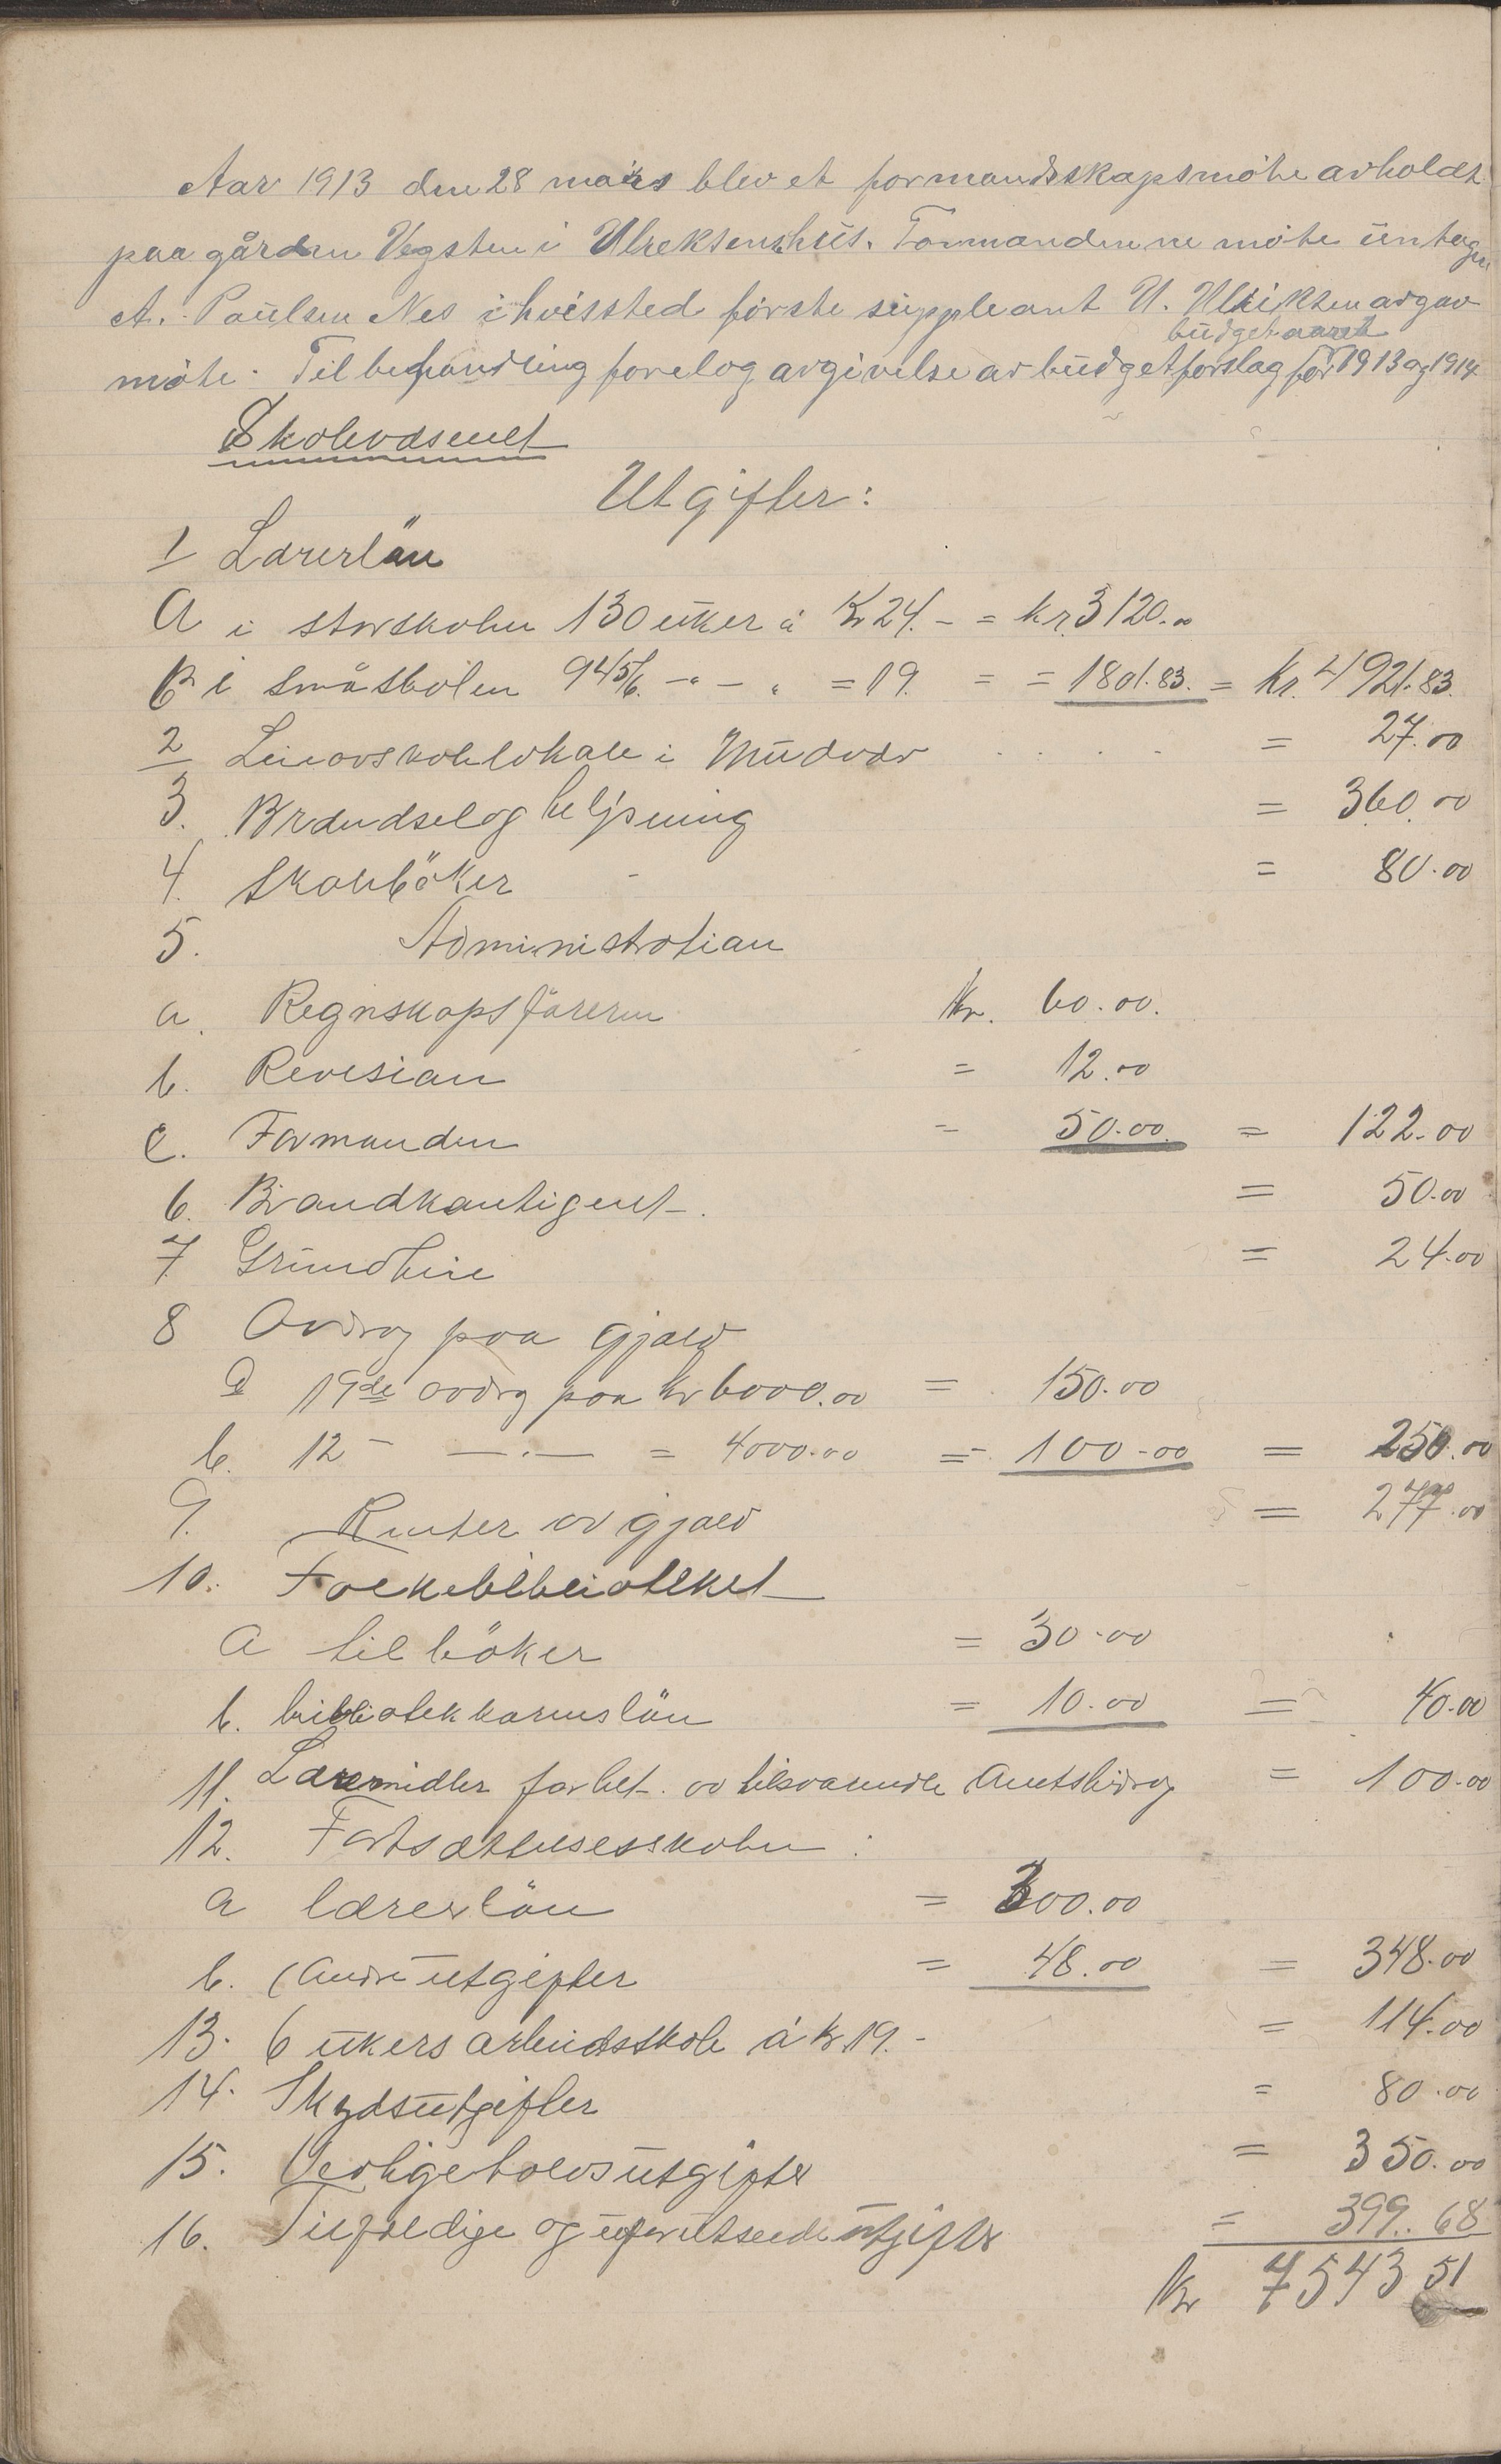 Aar 1913 den 28 mars blev et formandsskapsmöte avholdt
paa gården Vegsten i Ulreksenshus. Formændene möte untagen
A. Paulsen Nes i hvissted förste suppleant U. Ulriksen avgav
budgetaaret
möte. Til behandling forelog avgivelse av budgetforslag for 1913 og 1914
Skolevæsenet
Utgifter:
1 Lærerlön
A i storskolen 130 uker á Kr 24. - = kr. 3120.00
B i småskolen 94 5/6. -"- " = 19. = = 1801.83. = Kr. 4921.83.
2 Leie av skolelokale i Mudvær . . . . = 27.00
3. Brændsel og belysning = 360.00
4. Skoleböker - = 80.00
5. Administration
a. Regnskapsföreren Kr. 60.00.
b. Revision = 12.00
c. Formanden = 50.00 = 122.00
6. Brandkontigent. = 50.00
7. Grundleie = 24.00
8 Avdrag paa gjæld
a 19de avdrg paa kr 6000.00 = 150.00
b. 12 - -"- = 4000.00 = 100-00 = 250.00
9. Renter av gjæld = 277.00
10. Folkebiblioteket
a til böker = 30.00
b. bibliotekkarens lön = 10.00 = 40.00
11. Læremidler forhet. av tilsvarende Amtsbidrag = 100.00
12. Fortsættelsesskolen :
a lærerlön = 300.00
b. Andre utgifter = 48.00 = 348.00
13. 6 ukers arbeidsskole á kr 19. - = 114.00
14. Skydsutgifter = 80.00
15. Vedligeholdsutgifter = 350.00
16. Tilfældige og uforutseede utgifter = 399.68
Kr 7543 51